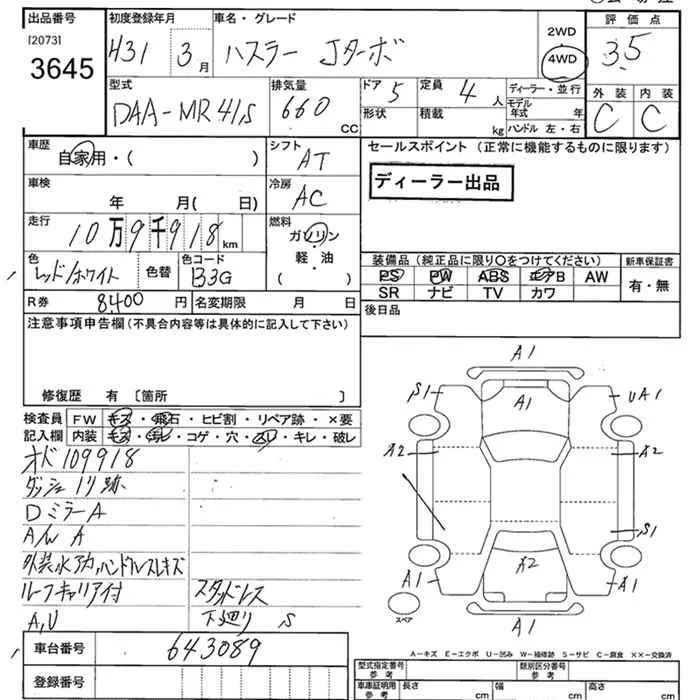 出品番号 初度登録年月 車名・グレード 評価点
[2073]
3645
H31 3月 ハスラー Jターボ 2WD 4WD 3.5
型式 排気量 ドア 5 定員 4人 ディーラー・並行 外装 内装
DAA-MR41S 660 CC 形状 積載 kg モデル年式 年 C C
ハンドル 左・右
車歴 自家用・( ) シフト AT セールスポイント (正常に機能するものに限ります)
車検 年 月( 日) 冷房 AC ディーラー出品
走行 10万9千918km 燃料 ガソリン 軽・油 ( )
色 レッド/ホワイト 色替 色コード B3G
装備品 (純正品に限り○をつけてください) 新車保証書
PS PW ABS エアB AW 有・無
SR ナビ TV カワ
R券 8,400 円 名変期限 月 日 後日品
注意事項申告欄 (不具合内容等は具体的に記入して下さい)
修復歴 有 〔箇所 〕
検査員 FW キズ・飛石・ヒビ割・リペア跡・×要
記入欄 内装 キズ・汚レ・コゲ・穴・スレ・キレ・破レ
オド109918
ダッシュ ノリ跡
DミラーA
A/W A
外装水アカ,ハンドルスレキズ
ルーフキャリア付 スタッドレス
A,U 下廻り S
車台番号 643089
登録番号
A1
S1 A1 UA1
A2 A2
S1
A2
A1 A1
スペア A1
A-キズ E-エクボ U-凹み W-補修跡 S-サビ C-腐食 ××-交換済
型式指定番号 参考 類別区分番号 参考
車庫証明用 参考 長さ cm 幅 cm 高さ cm